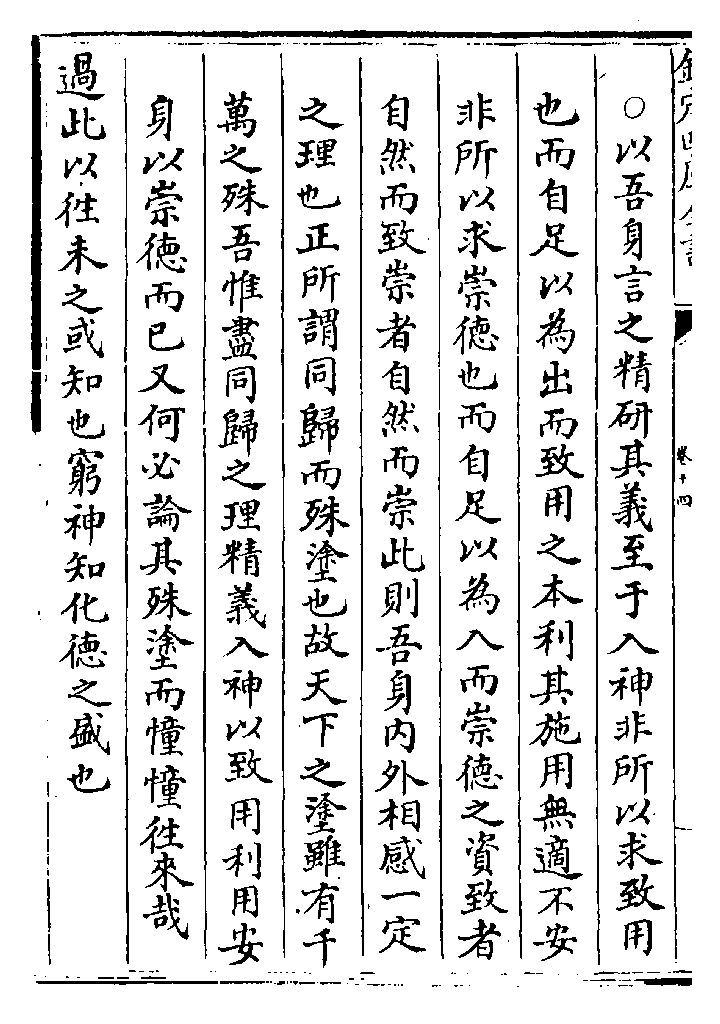 欽定四庫全書
卷十四
○以吾身言之精研其義至于入神非所以求致用
也而自足以為出而致用之本利其施用無適不安
非所以求崇德也而自足以為入而崇德之資致者
自然而致崇者自然而崇此則吾身内外相感一定
之理也正所謂同歸而殊塗也故天下之塗雖有千
萬之殊吾惟盡同歸之理精義入神以致用利用安
身以崇德而已又何必論其殊塗而憧憧往來哉
過此以往未之或知也窮神知化德之盛也